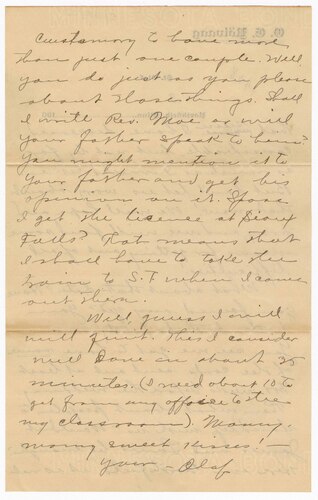 customary to have more
than just one couple. Well
you do just as you please
about those things. Shall
I write Rev. Moe or will
your father speak to him?
You might mention it to
your father and get his
opinion on it. Spose
I get the licence at Sioux
Falls? That means that
I shall have to take the
train to S.F. when I come
out there.
Well, guess I will
will quit. This I consider
well done in about 35
minutes. (I need about 10 to
get from my office to the
my classroom). Many,
many sweet kisses!—
Your Olaf